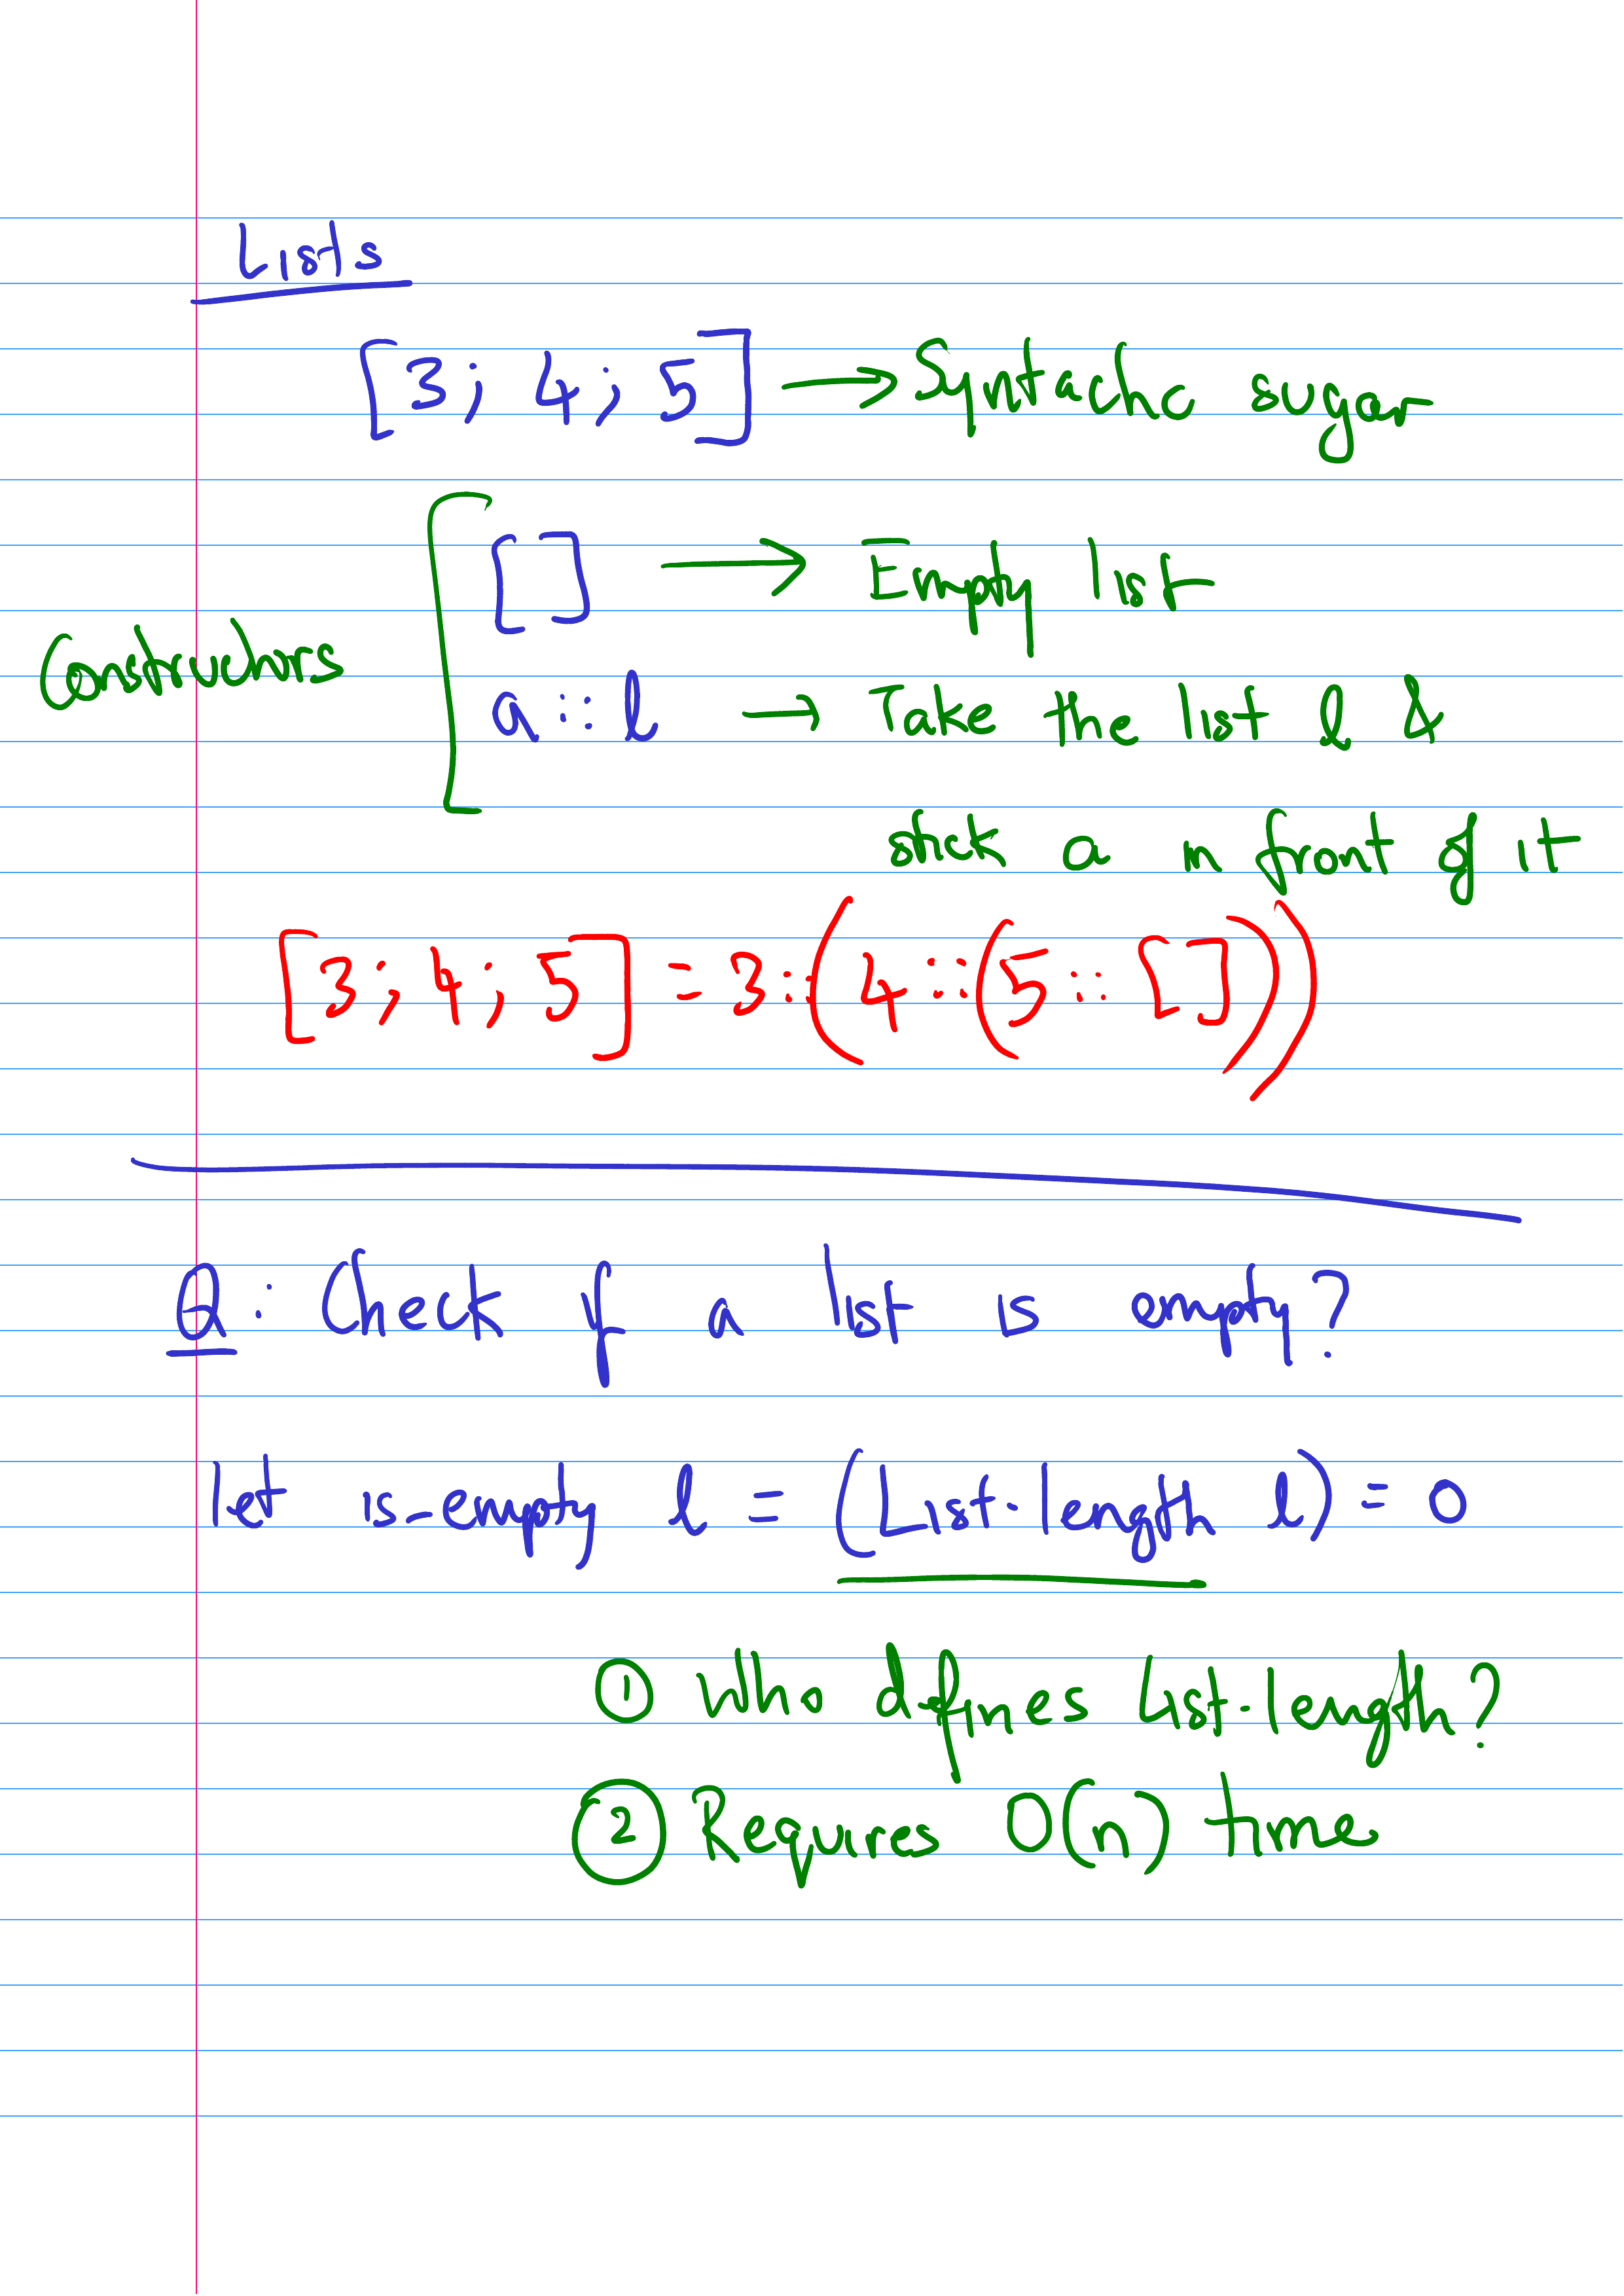 Lists
[3; 4; 5] → Syntactic sugar
[] → Empty list
Constructors
a :: l → Take the list l &
stick a in front of it
[3; 4; 5] = 3 :: (4 :: (5 :: []))
Q : Check if a list is empty?
let is_empty l = (List.length l) = 0
① Who defines List.length?
② Requires O(n) time